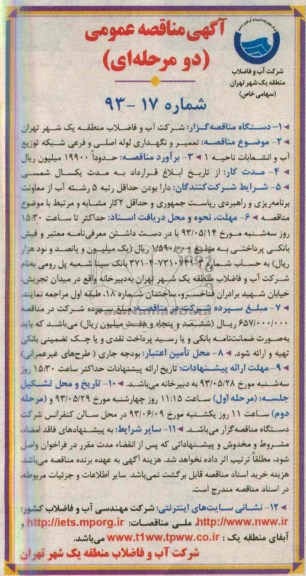 آگهی مناقصه عمومی
(دو مرحله‌ای)
شماره ۱۷ - ۹۳
شرکت آب و فاضلاب
منطقه یک شهر تهران
(سهامی خاص)
۱- دستگاه مناقصه‌گزار: شرکت آب و فاضلاب منطقه یک شهر تهران
۲- موضوع مناقصه: تعمیر و نگهداری لوله اصلی و فرعی شبکه توزیع
آب و انشعابات ناحیه ۱ ۳- برآورد مناقصه: حدوداً ۱۹۹۰۰ میلیون ریال
۴- مدت کار: از تاریخ ابلاغ قرارداد به مدت یکسال شمسی
۵- شرایط شرکت‌کنندگان: دارا بودن حداقل رتبه ۵ رشته آب از معاونت
برنامه‌ریزی و راهبردی ریاست جمهوری و حداقل ۲کار مشابه و مرتبط با موضوع
مناقصه ۶- مهلت، نحوه و محل دریافت اسناد: حداکثر تا ساعت ۱۵:۳۰
روز سه‌شنبه مورخ ۹۳/۰۵/۱۴ با در دست داشتن معرفی‌نامه معتبر و فیش
بانکی پرداختی به مبلغ ۱/۵۹۰/۰۰۰ ریال (یک میلیون و پانصد و نود هزار
ریال) به حساب شماره بانک سینا شعبه پل رومی به‌نام
شرکت آب و فاضلاب منطقه یک شهر تهران به‌دبیرخانه واقع در میدان تجریش،
خیابان شهید برادران فناخسرو، ساختمان شماره ۱۸، طبقه اول مراجعه نمایند.
۷- مبلغ سپرده شرکت در مناقصه: سپرده شرکت در مناقصه
۶۵۷/۰۰۰/۰۰۰ ریال (ششصد و پنجاه و هفت میلیون ریال) می‌باشد که باید
به‌صورت ضمانت‌نامه بانکی و یا رسید پرداخت نقدی و یا چک تضمینی بانکی
تهیه و ارائه شود. ۸- محل تأمین اعتبار: بودجه جاری (طرح‌های غیرعمرانی)
۹- مهلت ارائه پیشنهادات: تاریخ ارائه پیشنهادات حداکثر ساعت ۱۵:۳۰ روز
سه‌شنبه مورخ ۹۳/۰۵/۲۸ به دبیرخانه می‌باشد. ۱۰- تاریخ و محل تشکیل
جلسه: (مرحله اول) ساعت ۱۱:۱۵ روز چهارشنبه مورخ ۹۳/۰۵/۲۹ و (مرحله
دوم) ساعت ۱۱ روز یکشنبه مورخ ۹۳/۰۶/۰۹ در محل سالن کنفرانس شرکت
دستگاه مناقصه‌گزار می‌باشد. ۱۱- سایر شرایط: به پیشنهادهای فاقد امضاء،
مشروط و مخدوش و پیشنهاداتی که پس از انقضاء مدت مقرر در فراخوان واصل
شود، مطلقاً ترتیب اثر داده نخواهد شد. هزینه آگهی به عهده برنده مناقصه می‌باشد.
هزینه خرید اسناد مناقصه قابل برگشت نمی‌باشد. سایر اطلاعات و جزئیات مربوطه،
در اسناد مناقصه مندرج است.
۱۲- نشانی سایت‌های اینترنتی: شرکت مهندسی آب و فاضلاب کشور:
http://www.nww.ir، ملی مناقصات: http://iets.mporg.ir و
آبفای منطقه یک: www.t1ww.tpww.co.ir می‌باشد.
شرکت آب و فاضلاب منطقه یک شهر تهران